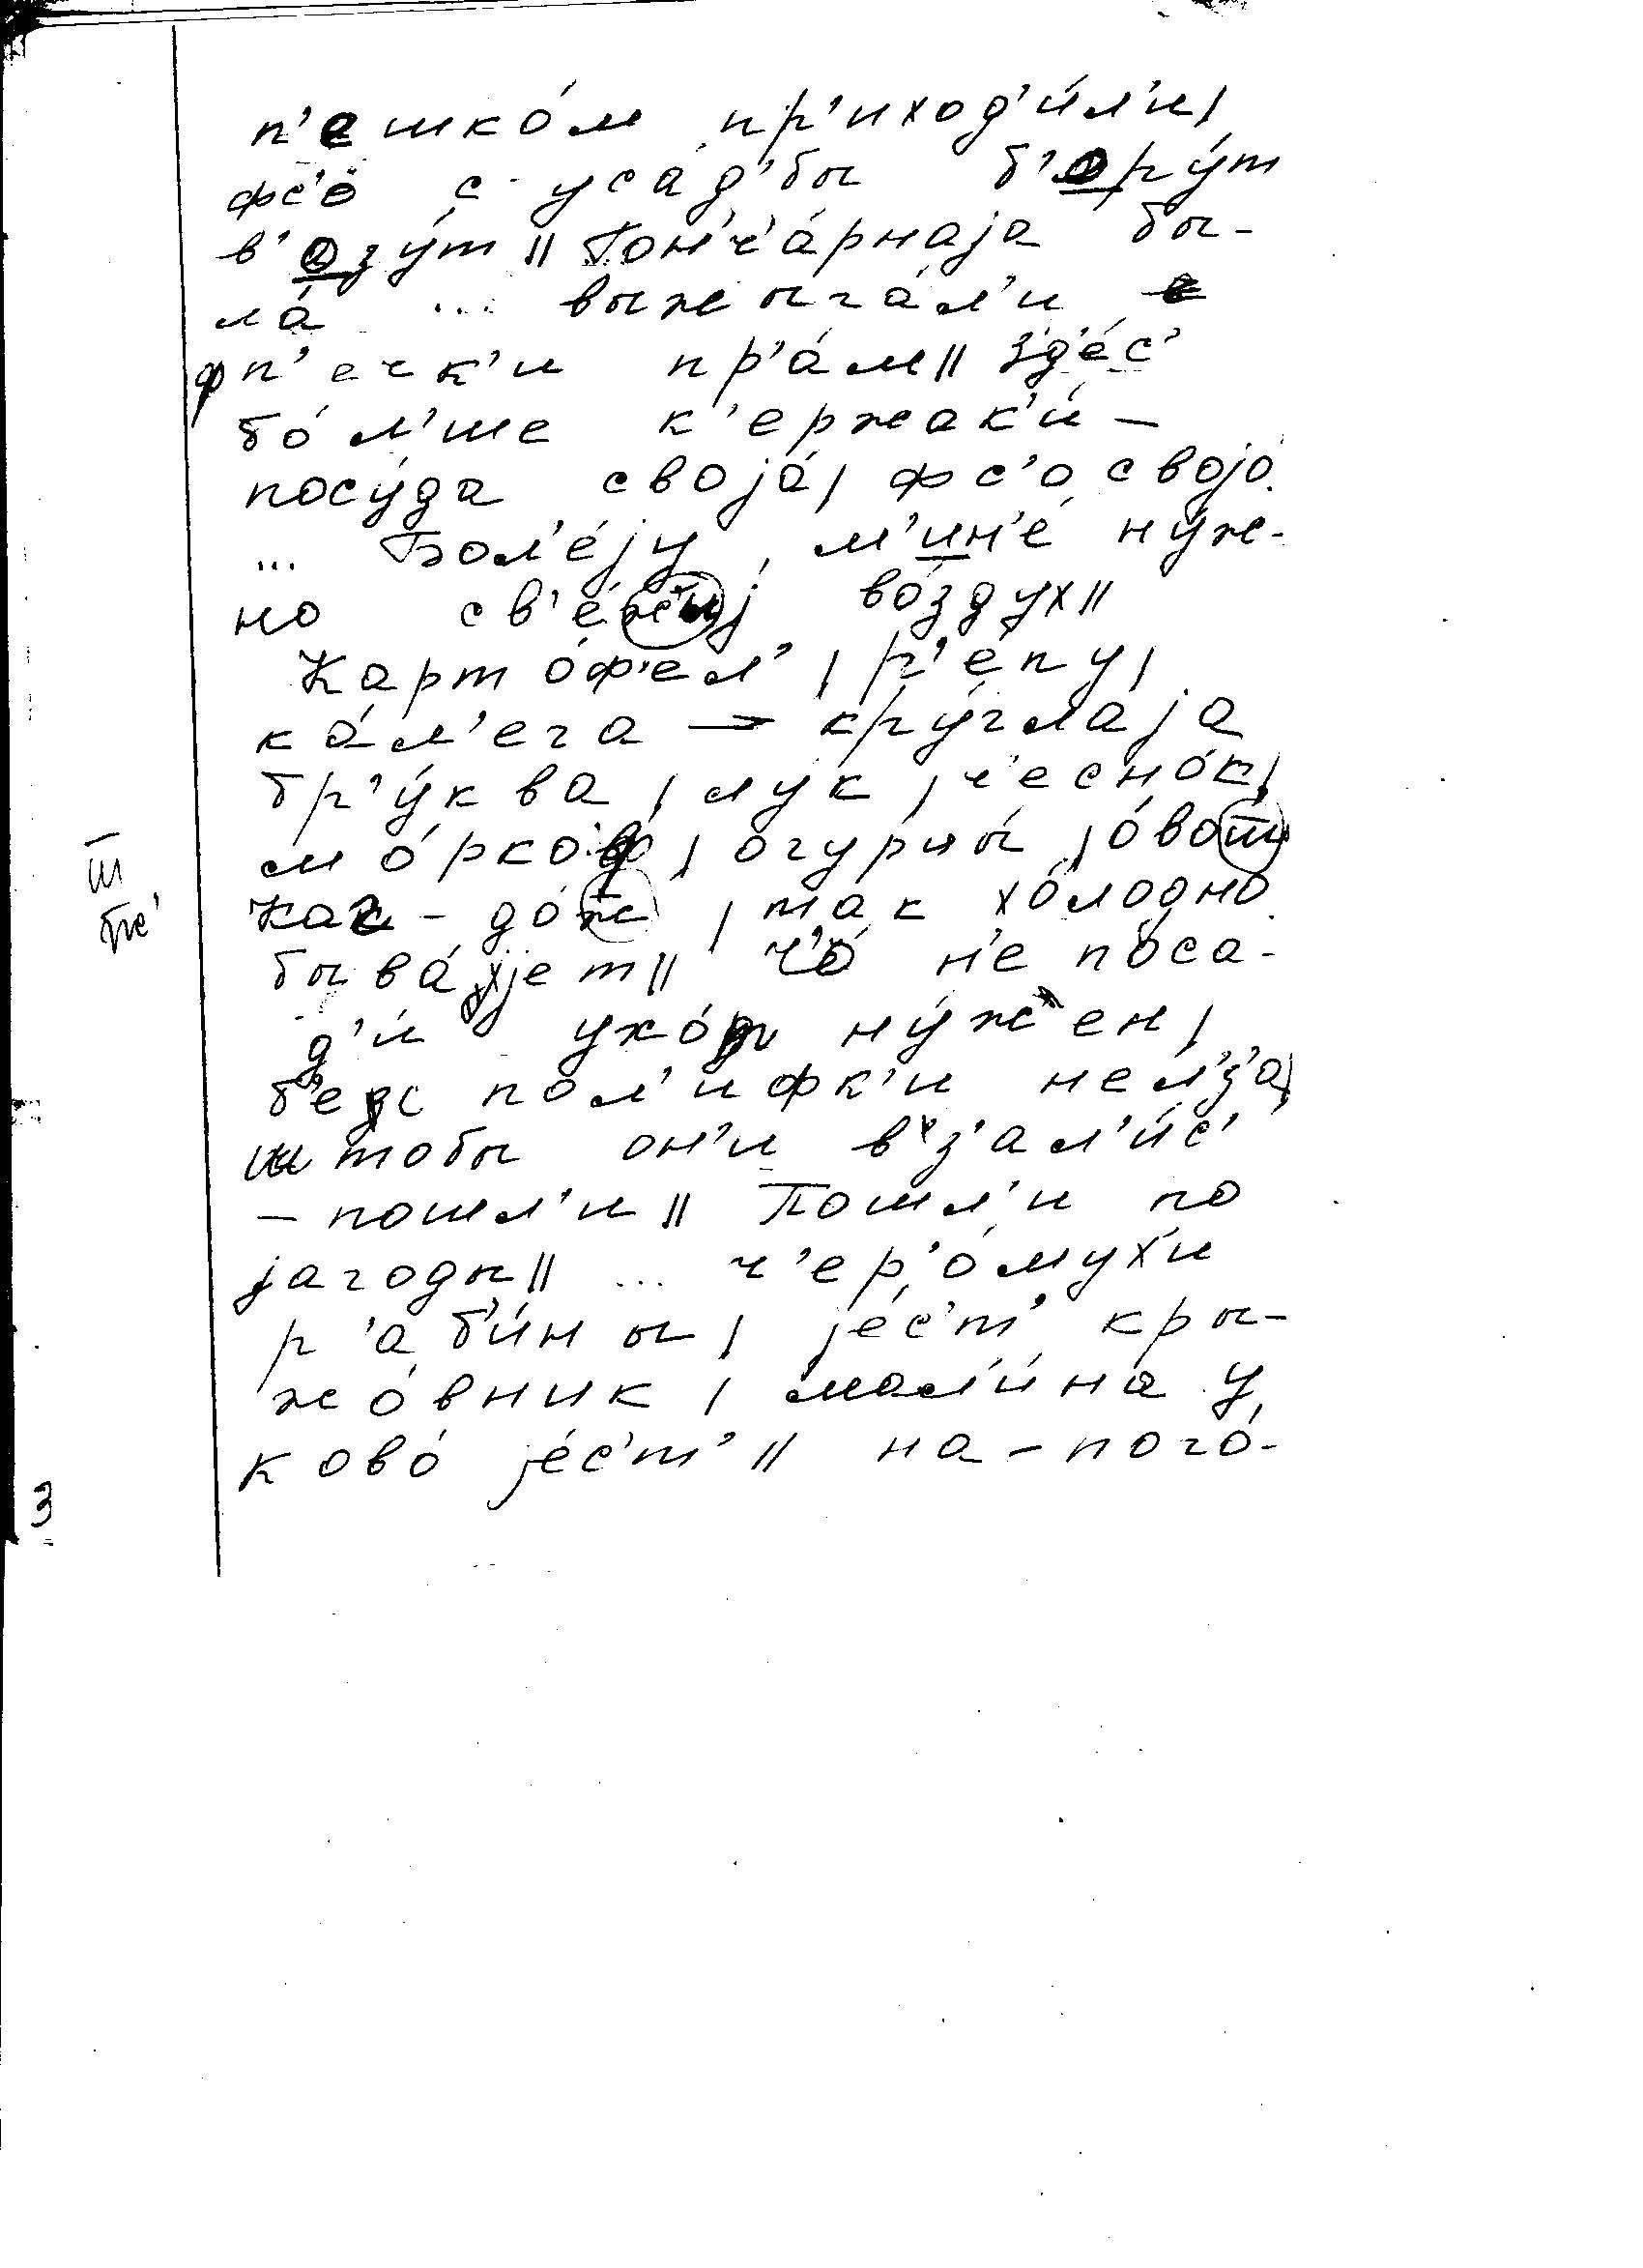 п'ешко́м пр'иход'и́л'и,
фс'о с уса́д'бы б'ору́т
в'озу́т || Гон'ч'а́рнаjа бы-
ла́ ... выжыга́л'и
фп'ечк'и пр'а́м || зд'е́с'
бо́л'ше к'ержак'и́ –
посу́да своjа́, фс'о своjо́.
... Бол'е́jу, м'ин'е́ ну́ж-
но св'е́жыj во́здух ||
Карто́ф'ел', р'е́пу,
ка́л'ега – кру́глаjа
бр'у́ква, лук, ч'есно́к,
мо́рков', огурцы́, о́вош
как-дож, так хо́лодно
быва́jет || ч'о́ н'е поса-
д'и́ ухо́т ну́жен,
б'ес пол'ифк'и нел'з'а́,
штобы он'и в'з'ал'и́с'
– пошл'и || Пошл'и по
jагоды || ... ч'ер'о́мух'и
р'аб'и́ны, jе́с'т' кры-
жо́вник, мал'и́на у
ково́ jе́с'т' || на-пого́-
ш
ж'
3